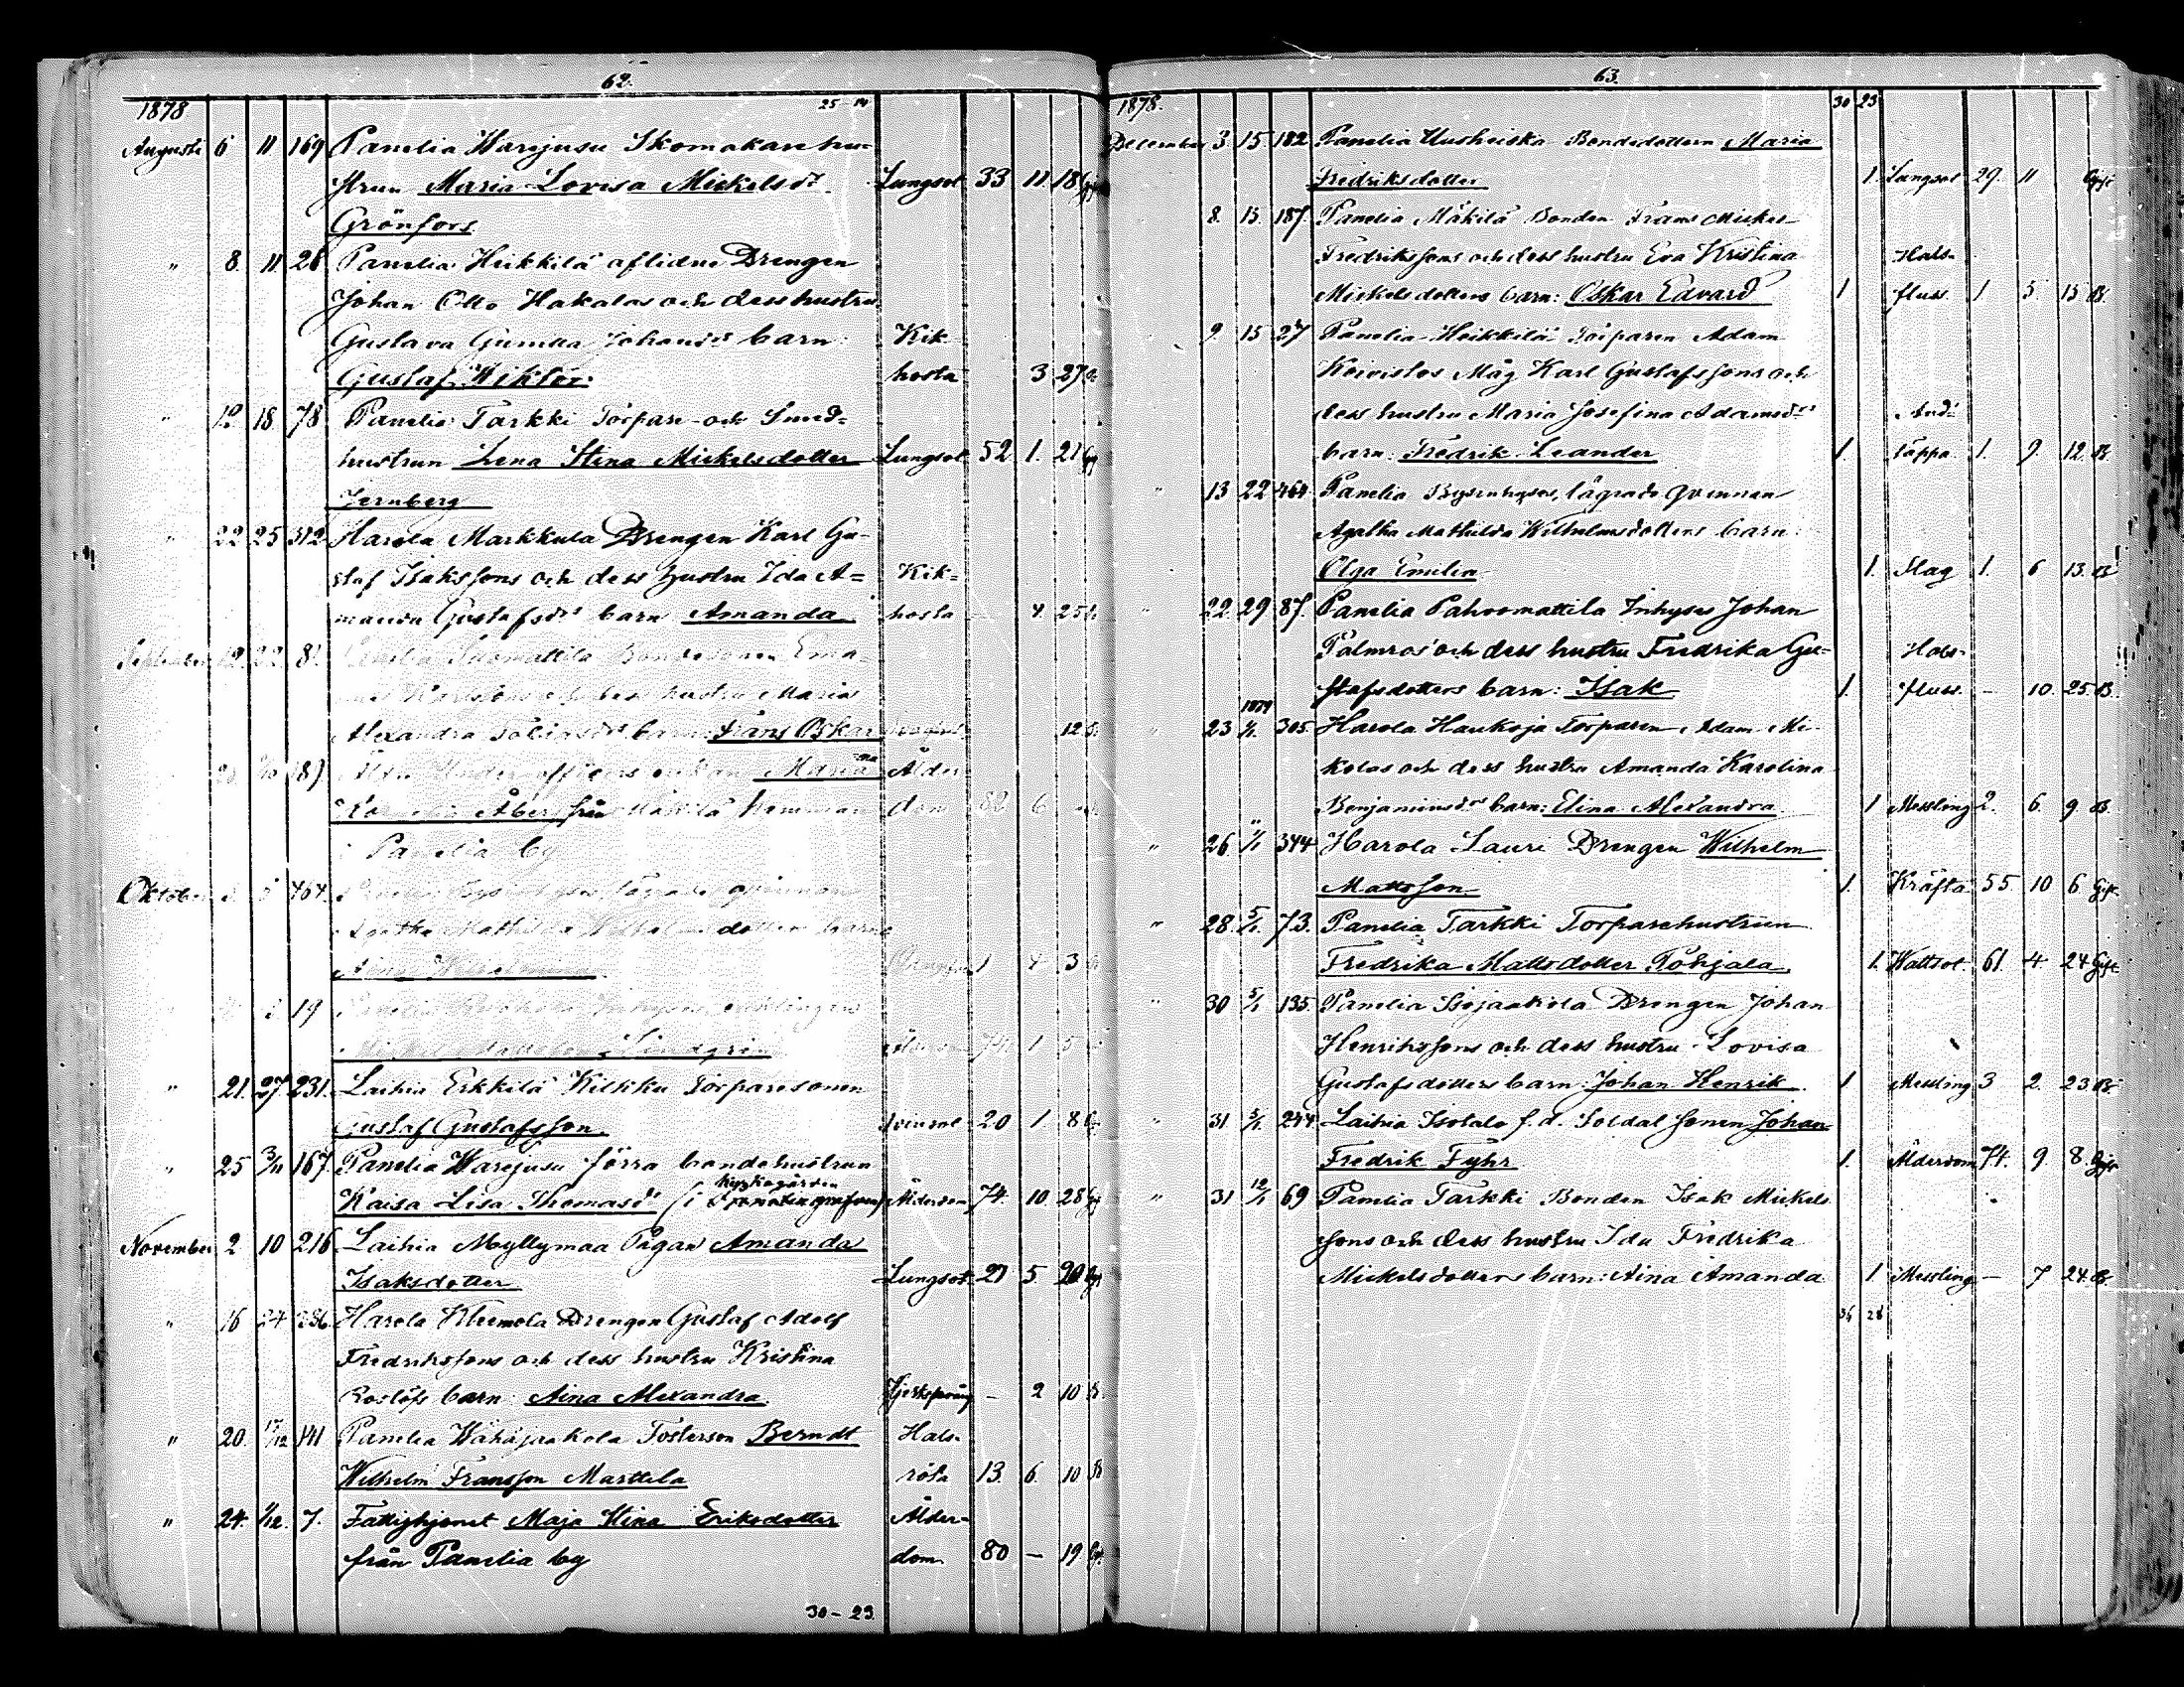 62.
1878 25-14
Augusti 6 11 169 Panelia Warejusu Skomakarehu-
strun Maria Lovisa Mickelsdr Lungsot 33 11 18
Grönfors
" 8. 11. 28 Panelia Heikkilä aflidne Drengen
Johan Otto Hakalas och dess hustru
Gustava Gunilla Johansdr barn: Kik-
Gustaf Wiktor. hosta 3 27
" 12 18. 78 Panelia Tarkki Torpare- och Smed-
hustrun Lena Stina Mickelsdotter Lungsot 52 1. 21
Jernberg
" 22 25 312 Harola Markkula Drengen Karl Gu-
staf Isakssons och dess hustru Ida A= Kik=
manda Gustafsdr barn Amanda hosta - 4 25
September 19. 22. 8. Panelia Bondesonen Ema-
Karlssons och dess hustru Maria
Alexandra Tobiasdr barn Frans Oskar 12
Under officers enkan Maria Ålder
Åberg från Mäkilä hemman dom 82 6
i Panelia by
Oktober 464. lägrade qvinnan
Agatha Mathilda Wilhelmsdotters barn
Aina Wilhelmina 1 4 3
19 Panelia Inhyses enklingen
Lindgren 74 1 5
" 21. 27 231. Laihia Erkkilä Kilkku Torparesonen
Gustaf Gustafsson. 20 1 8
" 25 3/11 167. Panelia Warejusu förra bondehustrun
kyrkogården
Kaisa Lisa Thomasdr (i Ålderdom 74. 10. 28
November 2 10 216 Laihia Myllymaa Pigan Amanda
Isaksdotter Lungsot 21 5 20
" 16 24 236 Harola Klemola Drengen Gustaf Adolf
Fredrikssons och dess hustru Kristina
Roslöfs barn: Aina Alexandra. - 2 10 B.
" 20. 17/12 141 Panelia Wähäjaakola Fosterson Berndt Hals-
Wilhelm Fransson Marttila röta 13. 6. 10 B
" 24. 1/12. 7. Fattighjonet Maja Stina Eriksdotter Ålder-
från Panelia by dom 80 - 19
30-23.
63.
1878. 30 23
December 3 15 182 Panelia Uusheiska Bondedottern Maria
Fredriksdotter 1. Lungsot 29. 11 Gift
8. 15. 187. Panelia Mäkilä Bonden Frans Mickel
Fredrikssons och dess hustru Eva Kristina Hals-
Mickelsdotters barn: Oskar Edvard 1 fluss. 1 5 15 B.
9. 15 27 Panelia Heikkilä Torparen Adam
Koivistos Måg Karl Gustafssons och
dess hustru Maria Josefina Adamsdr And-
barn: Fredrik Leander 1. täppa 1. 9. 12. B.
" 13 22 464 Panelia Bysinhyses, lägrade qvinnan
Agatha Mathilda Wilhelmsdotters barn:
Olga Emilia 1. Slag 1. 6 13. B
" 22. 29 87. Panelia Pahoomattila Inhyses Johan
Palmros och dess hustru Fredrika Gu= Hals-
stafsdotters barn: Isak 1. fluss. - 10. 25. B.
1879
" 23 1/1. 305 Harola Haukoja Torparen Adam Mi-
kolas och dess hustru Amanda Karolina
Benjaminsdr barn: Elina Alexandra. 1 Messling 2. 6. 9 B.
" 26 11/1 344 Harola Lauri Drengen Wilhelm
Mattsson 1. Kräfta 55. 10 6 Gift.
" 28. 5/1. 73. Panelia Tarkki Torparehustrun
Fredrika Mattsdotter Pohjala. 1. Wattsot. 61. 4. 24 Gift
" 30 5/1 135. Panelia Isojaakola Drengen Johan
Henrikssons och dess hustru Lovisa
Gustafsdotters barn: Johan Henrik. 1 Messling 3 2. 23 B.
" 31 5/1. 244 Laihia Isotalo f.d. Soldat sonen Johan
Fredrik Fyhr. 1. Ålderdom 74. 9. 8. Gift
" 31 12/1 69 Panelia Tarkki Bonden Isak Mickels
sons och dess hustru Ida Fredrika
Mickelsdotters barn: Aina Amanda 1 Messling - 7 24. B.
36 28